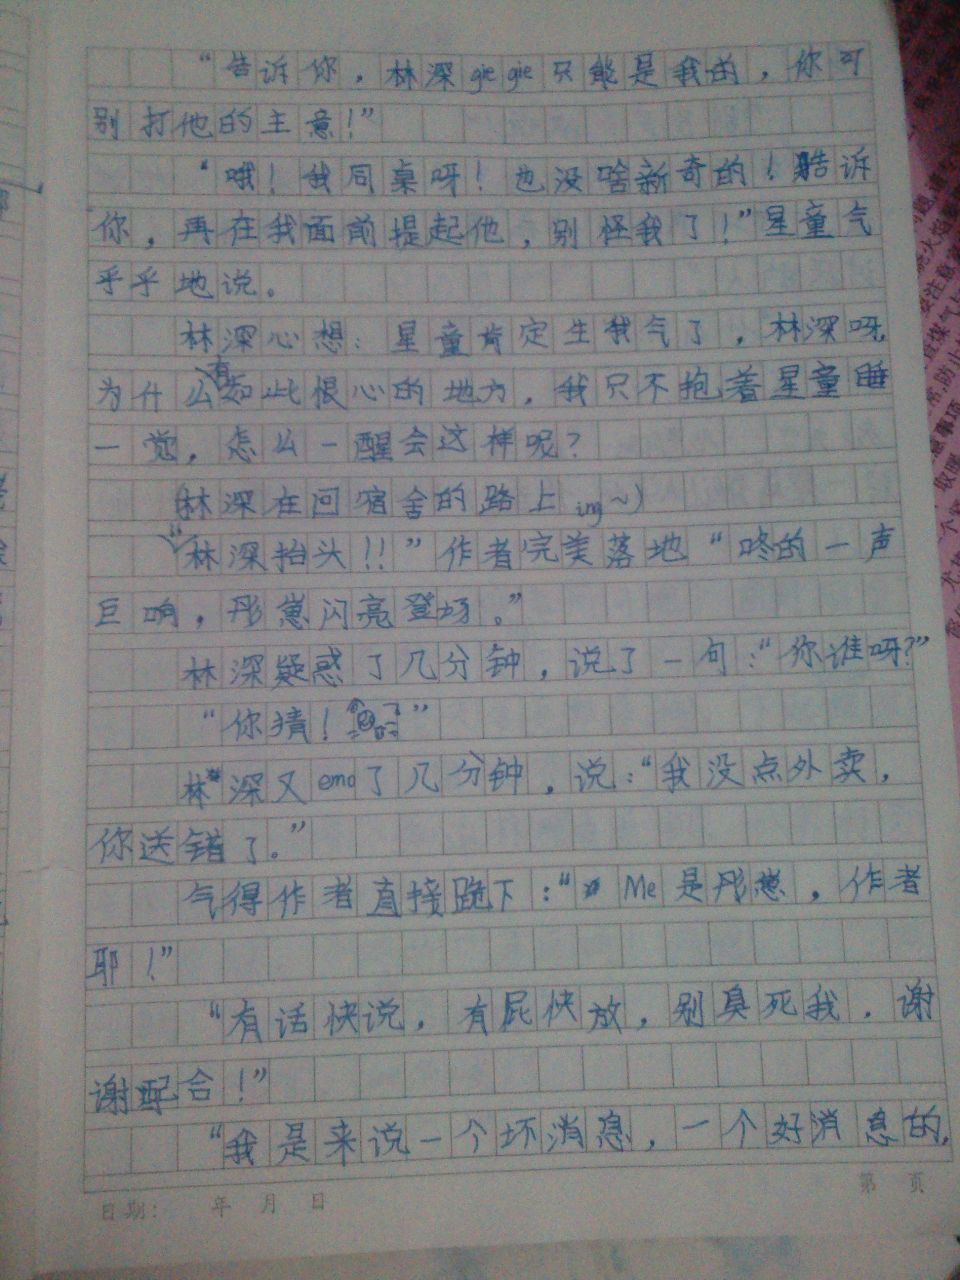 “告诉你，林深giegie只能是我的，你可
别打他的主意！”
“哦！我同桌呀！也没啥新奇的！告诉
你，再在我面前提起他，别怪我了！”星童气
乎乎地说。
林深心想：星童肯定生我气了，林深呀，
为什么有如此恨心的地方，我只不抱着星童睡
一觉，怎么一醒会这样呢？
(林深在回宿舍的路上ing~)
“林深抬头！！”作者完美落地“咚的一声
巨响，彤崽闪亮登场。”
林深疑惑了几分钟，说了一句：“你谁呀？”
“你猜！”
林深又emo了几分钟，说：“我没点外卖，
你送错了。”
气得作者直接跪下：“Me是彤崽，作者
耶！”
“有话快说，有屁快放，别臭死我，谢
谢配合！”
“我是来说一个坏消息，一个好消息的，
日期： 年 月 日
第 页